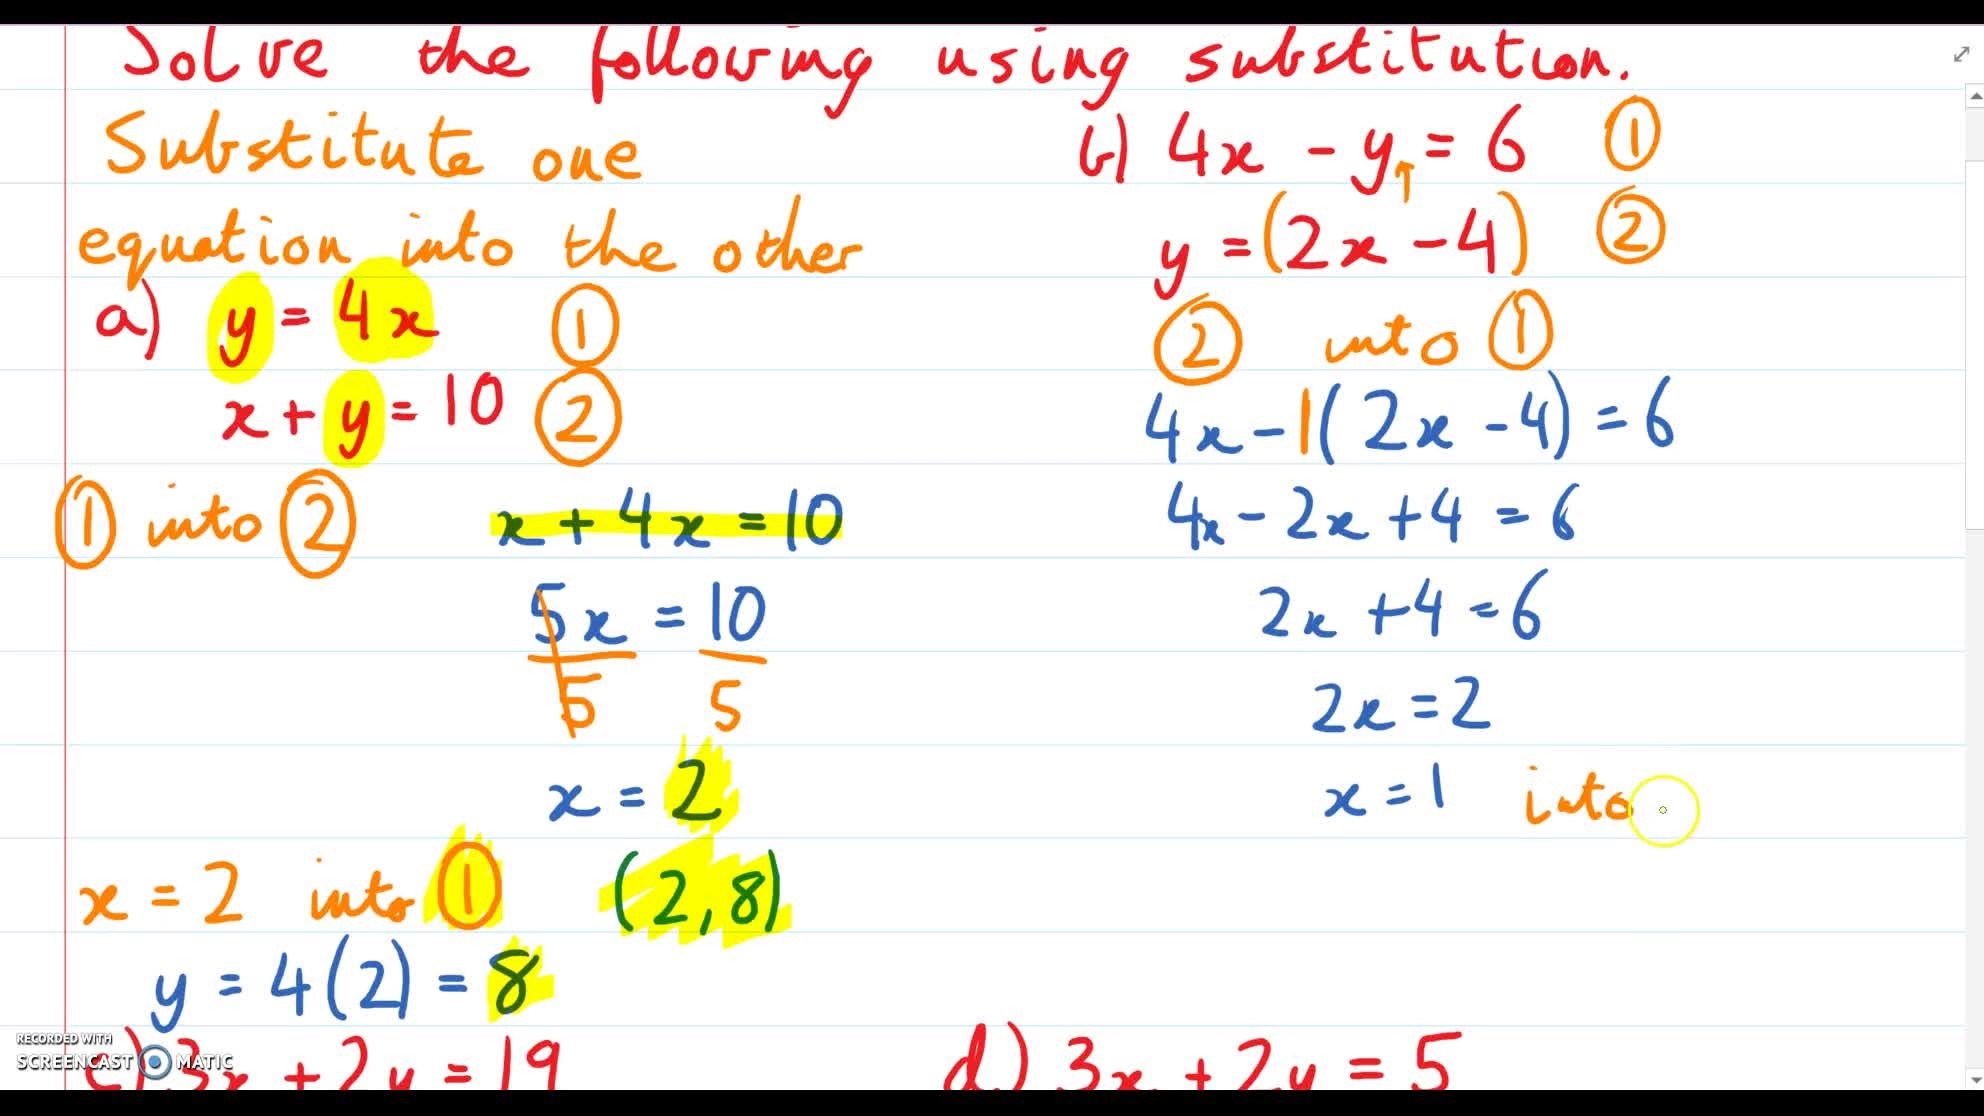 Solve the following using substitution.
Substitute one
equation into the other
a) y = 4x ①
x + y = 10 ②
① into ② x + 4x = 10
5x = 10
5 5
x = 2
x = 2 into ① (2, 8)
y = 4(2) = 8
b) 4x - y = 6 ①
y = (2x - 4) ②
② into ①
4x - 1(2x - 4) = 6
4x - 2x + 4 = 6
2x + 4 = 6
2x = 2
x = 1 into
c) 3x + 2y = 19
d) 3x + 2y = 5
RECORDED WITH
SCREENCAST MATIC